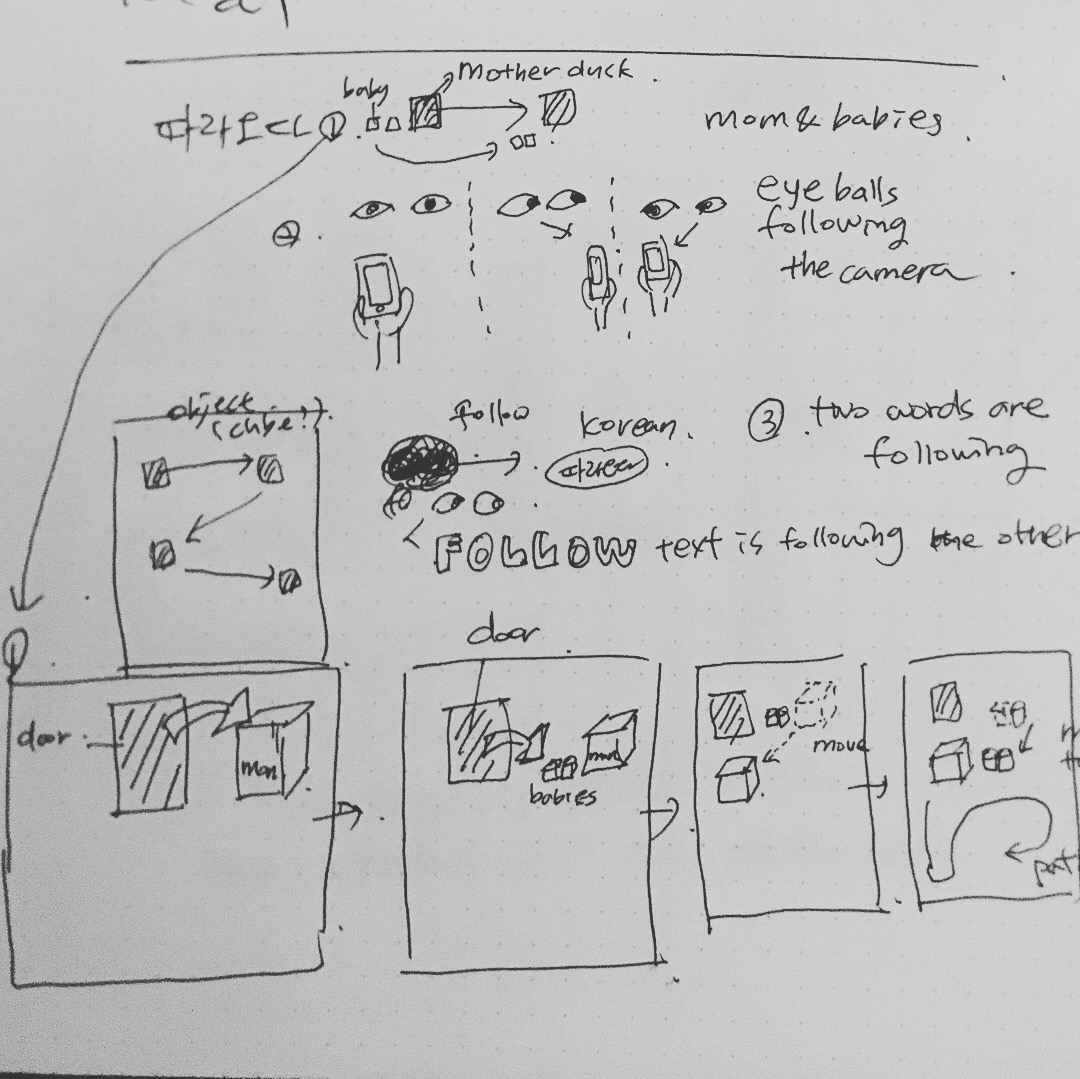 baby
Mother duck.
따라온다 ①.
mom & babies.
②.
eye balls
following
the camera.
object.
(cube!?).
follow
korean.
③. two words are
following
< FOLLOW text is following the other
①
door
door
mom
mom
babies
move